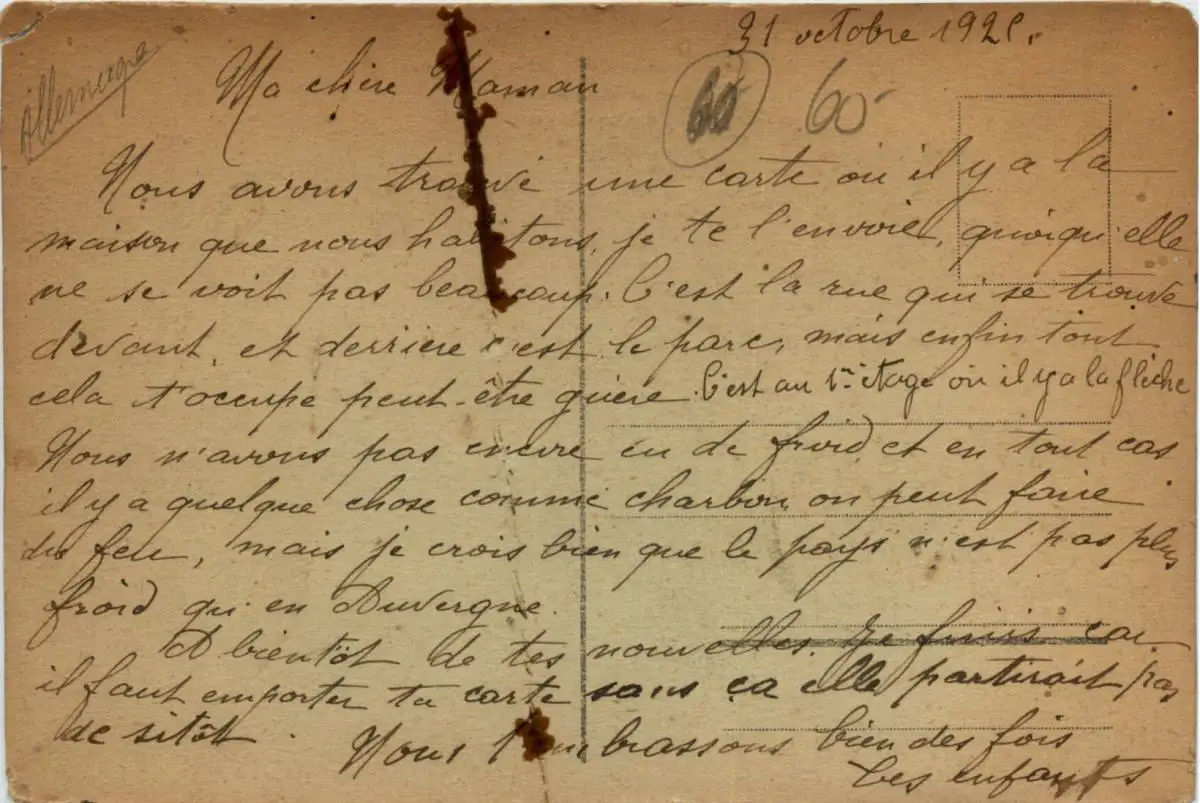 31 octobre 192
Allemagne
Ma chère Maman
60 60
Nous avons trouvé une carte où il y a la
maison que nous habitons, je te l'envoie, quoiqu'elle
ne se voit pas beaucoup. C'est la rue qui se trouve
devant, et derrière c'est le parc, mais enfin tout
cela t'occupe peut-être guère. C'est au 1er étage où il y a la flèche
Nous n'avons pas encore eu de froid et en tout cas
il y a quelque chose comme charbon, on peut faire
du feu, mais je crois bien que le pays n'est pas plus
froid qu'en Auvergne.
A bientôt de tes nouvelles. Je finis car
il faut emporter ta carte sans ça elle partirait pas
de sitôt. Nous t'embrassons bien des fois
Tes enfants